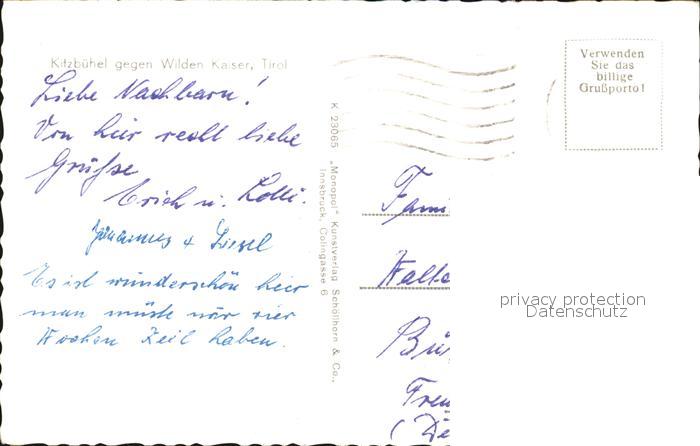 Kitzbühel gegen Wilden Kaiser, Tirol
Liebe Nachbarn!
Von hier recht liebe
Grüße
Erich u. Lotti.
Johannes + Liesel
Es ist wunderschön hier
man müßte nur vier
Wochen Zeit haben.
K 23065 „Monopol" Kunstverlag Schöllhorn & Co.,
Innsbruck, Colingasse 6
Verwenden
Sie das
billige
Grußporto!
Fami
Walte
Bü
(De
privacy protection
Datenschutz